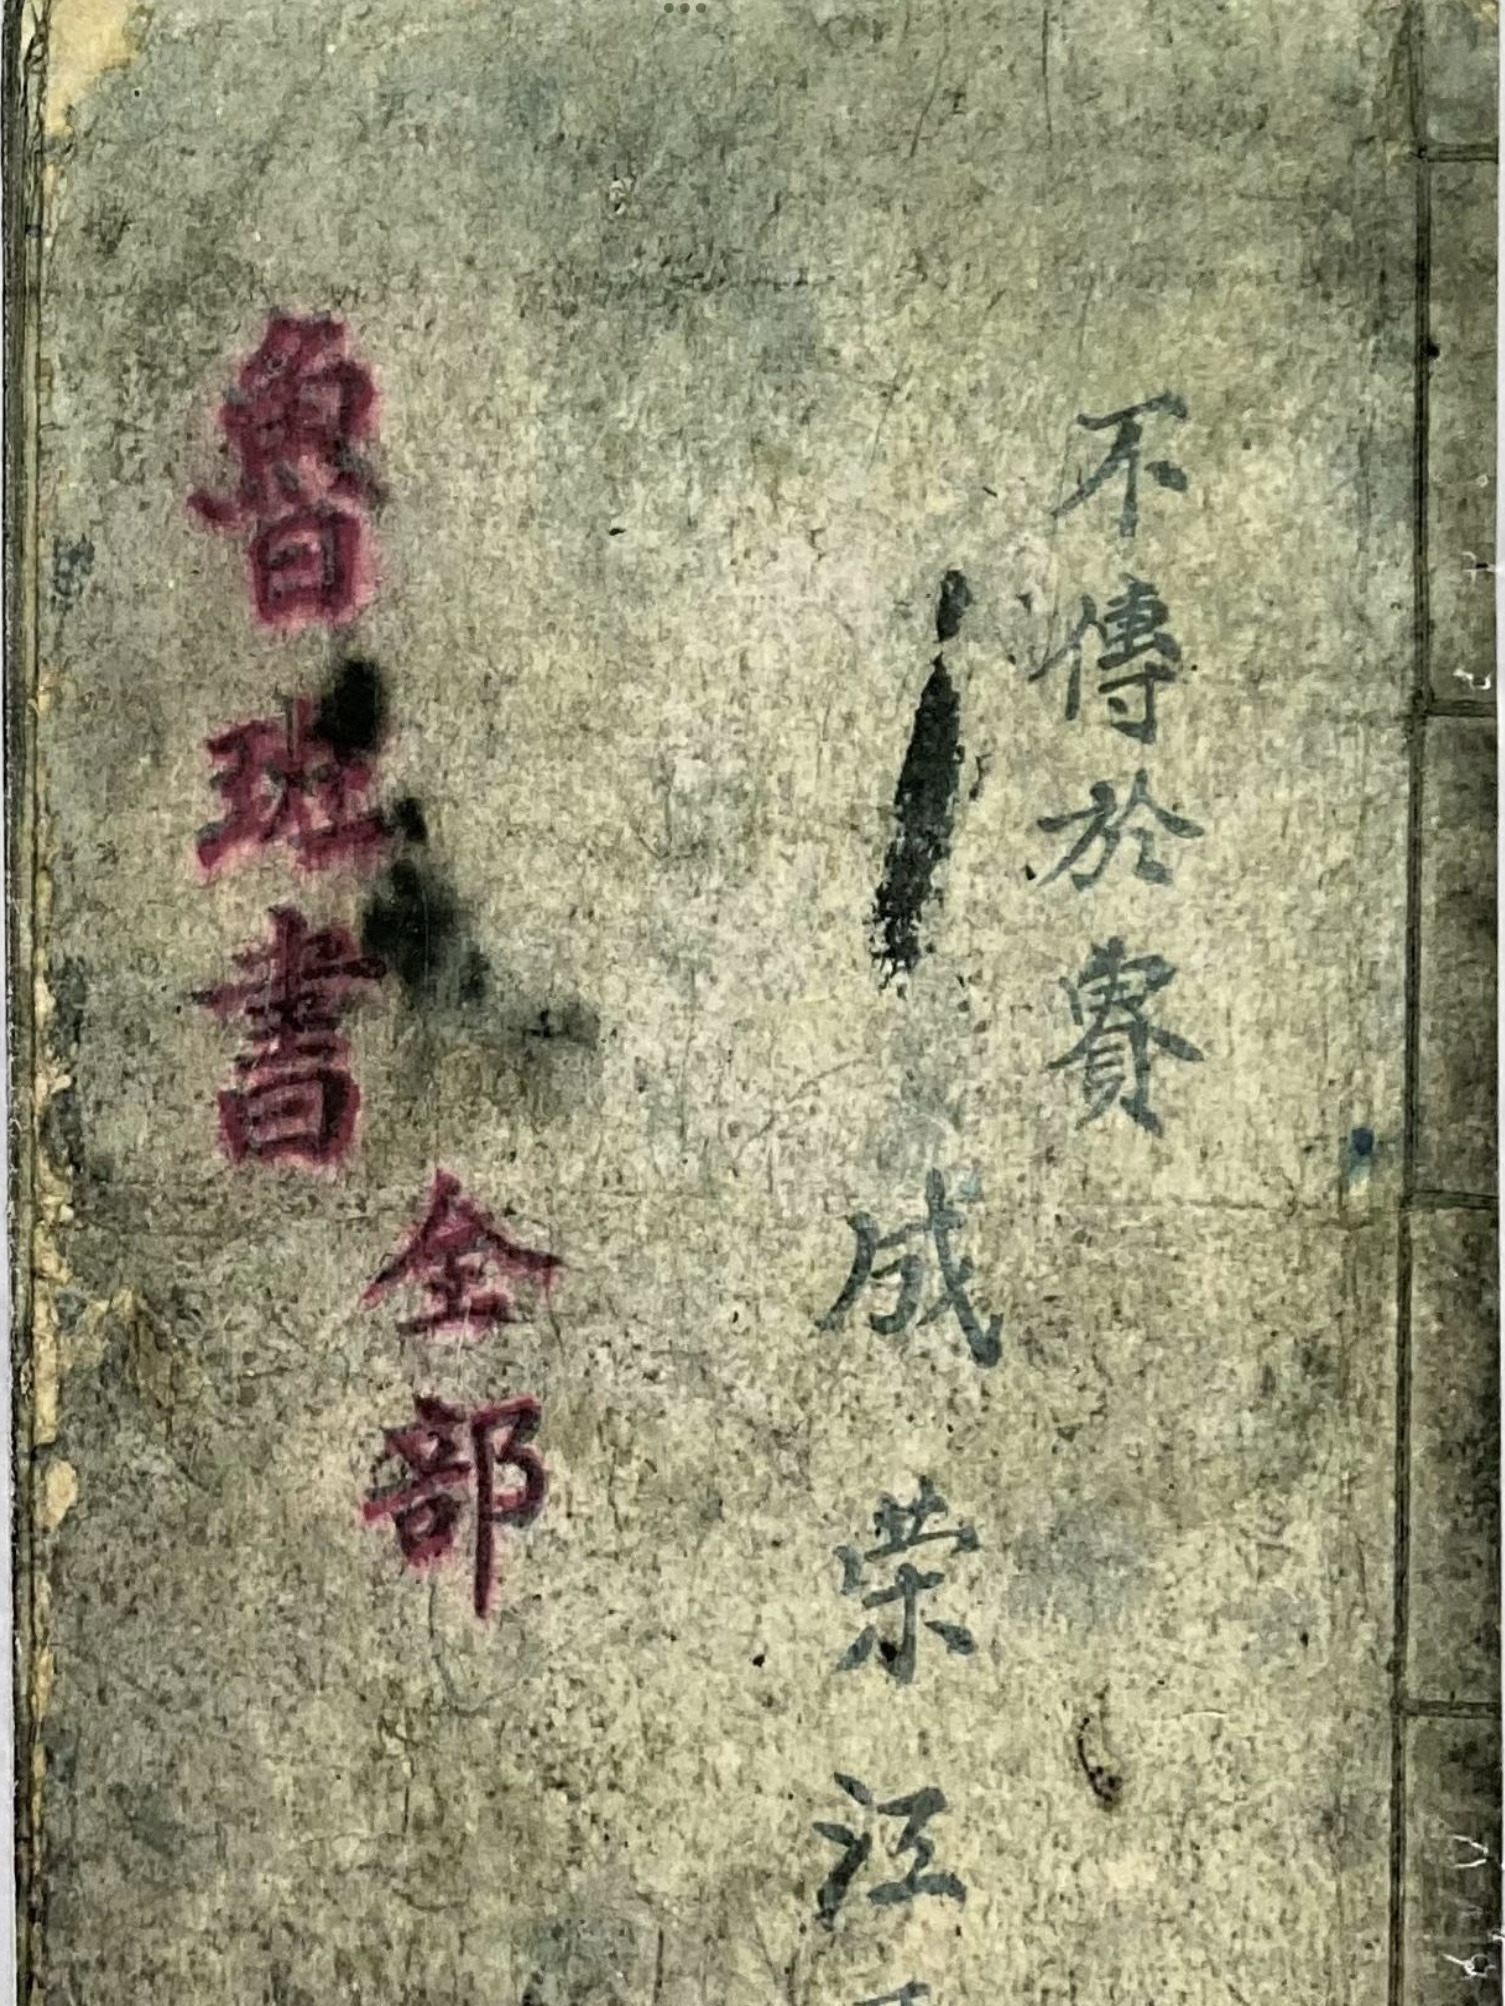 不傳於賽
成荣江
魯班書
全部